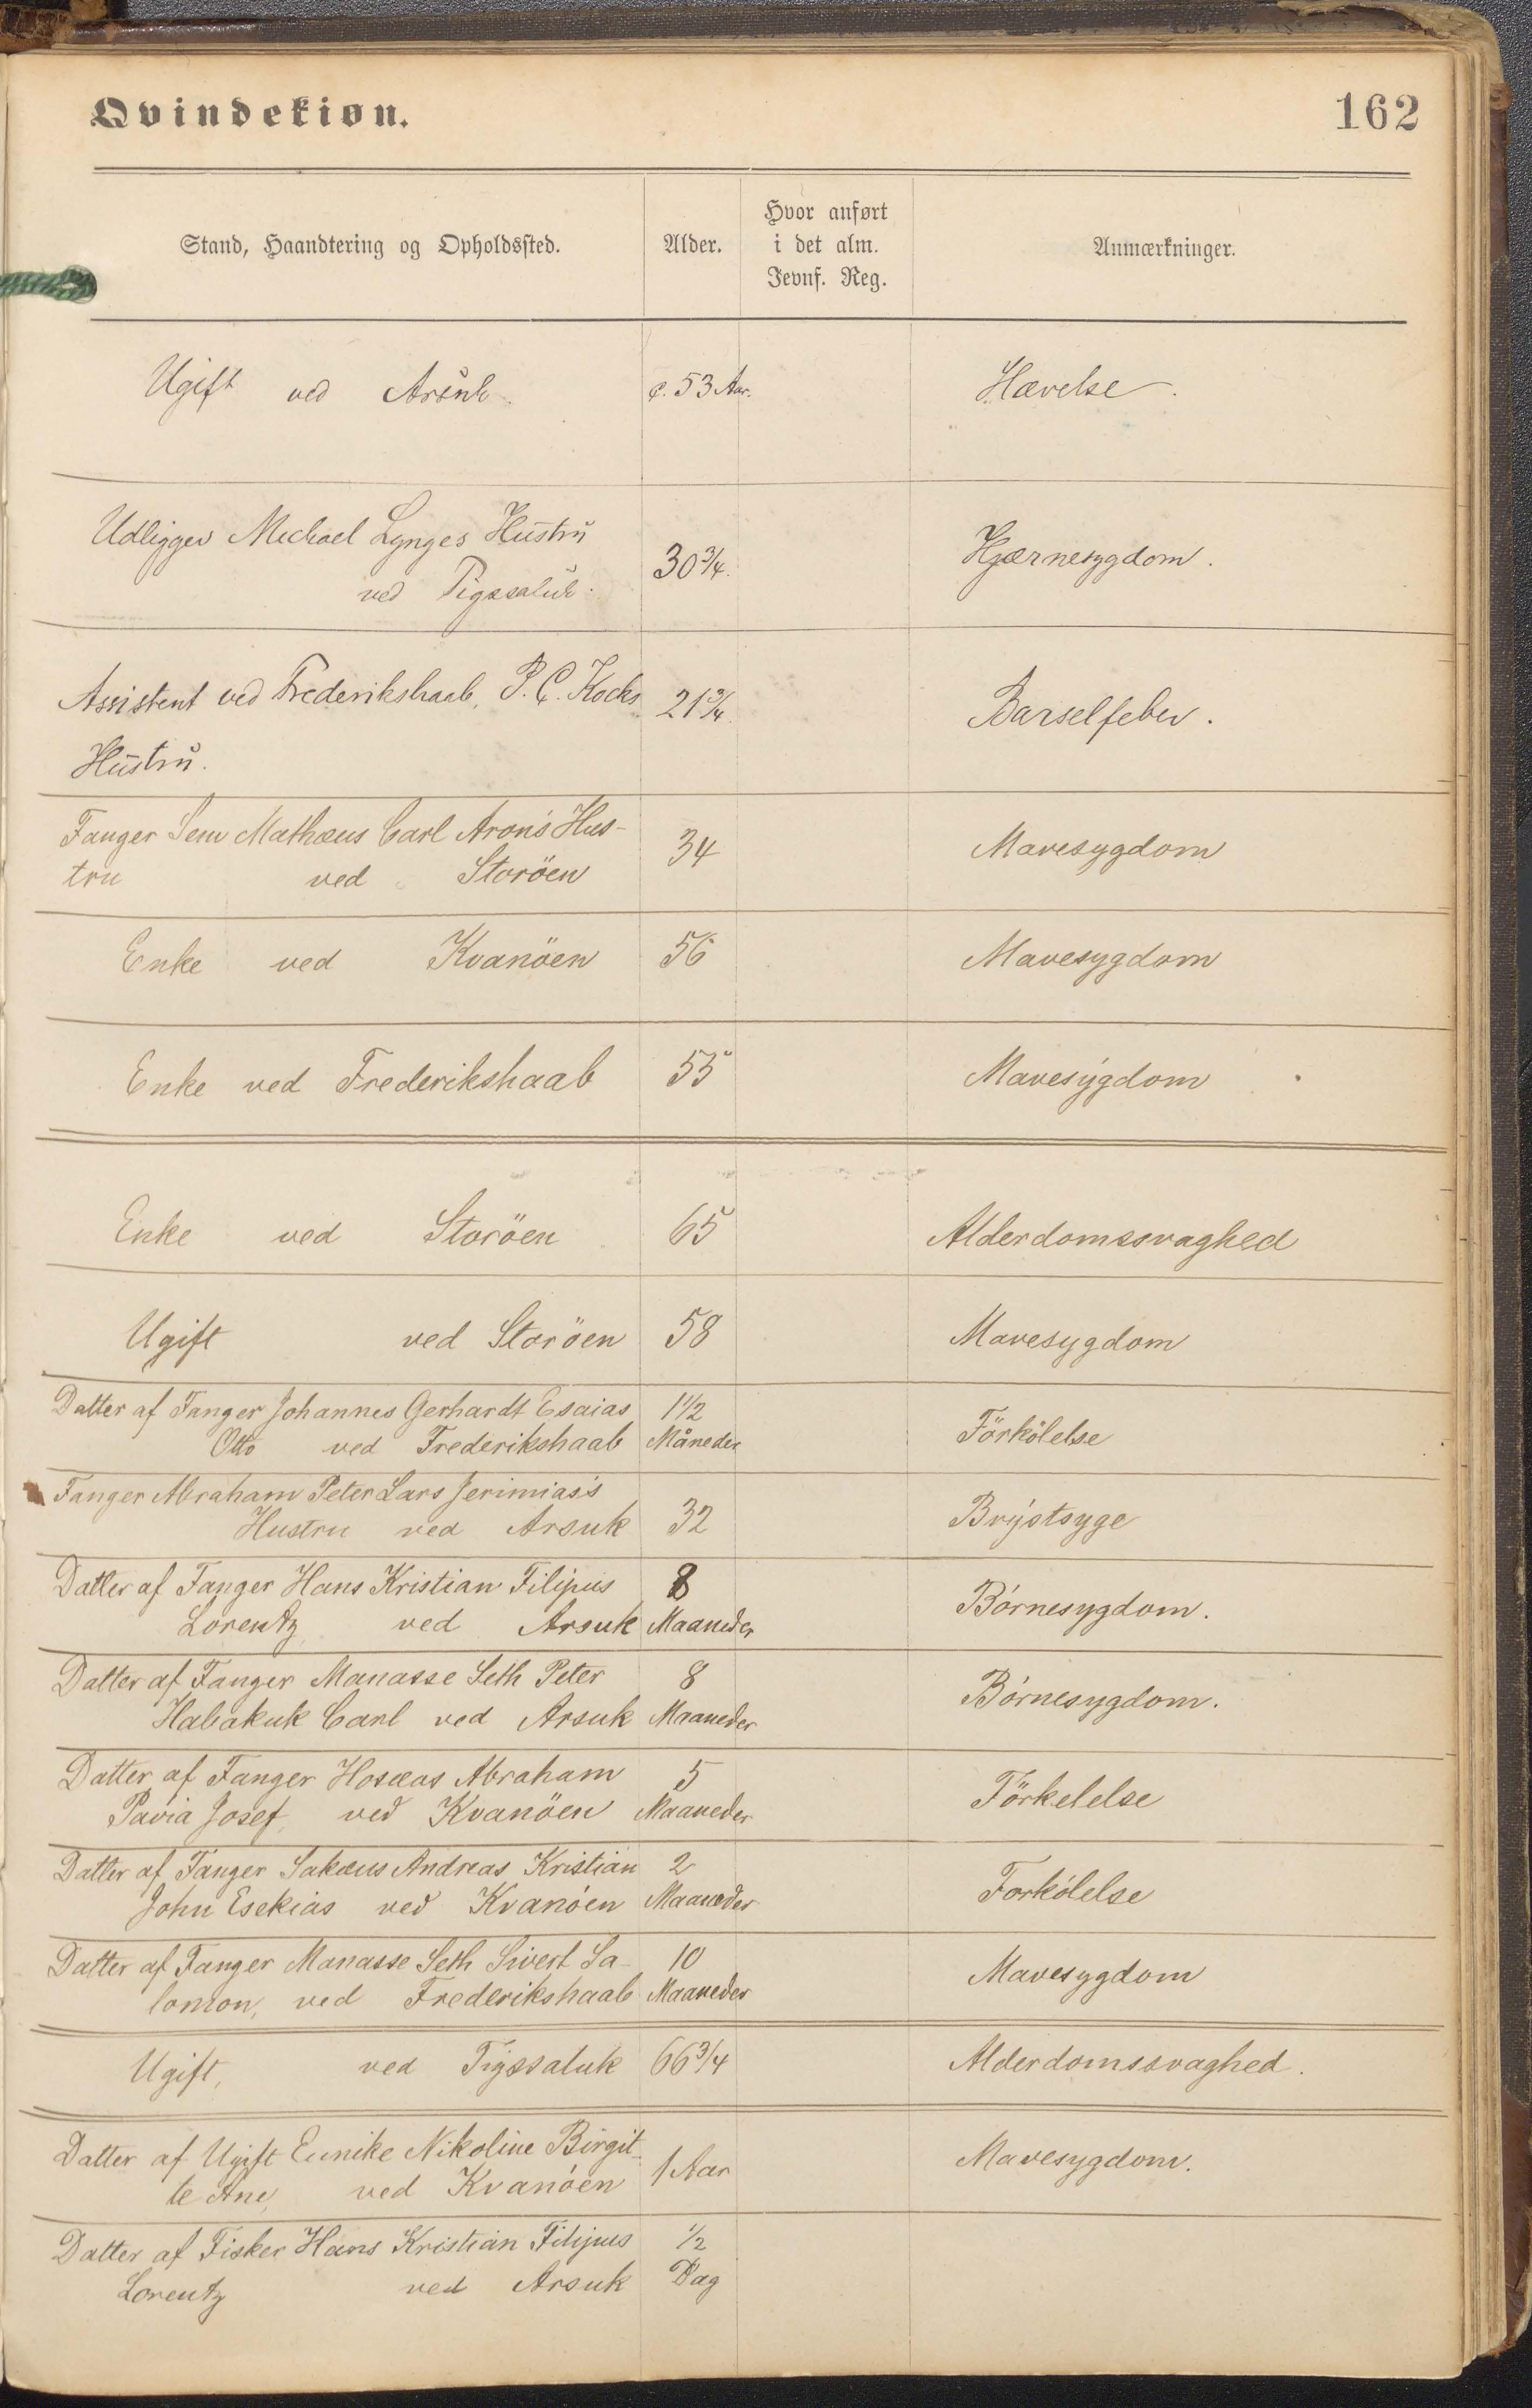 Qvindekiøn.
162
Stand, Haandtering og Opholdssted.
Alder.
Hvor anført
i det alm.
Jevnf. Reg.
Anmærkninger.
Ugift ved Arsuk. c. 53 Aar. Hævelse.
Udligger Michael Lynges Hustru
ved Tigssaluk. 30 3/4. Hjærnesygdom.
Assistent ved Frederikshaab, P. C. Kocks 21 3/4. Barselfeber.
Hustru.
Fanger Sem Mathæus Carl Aron's Hus-
tru ved Storöen 34 Mavesygdom
Enke ved Kvanöen 56 Mavesygdom
Enke ved Frederikshaab 55 Mavesygdom
Enke ved Storöen 65 Alderdomssvaghed
Ugift ved Storöen 58 Mavesygdom
Datter af Fanger Johannes Gerhardt Esaias 1 1/2
Otto ved Frederikshaab Måneder Förkölelse
Fanger Abraham Peter Lars Jerimias's
Hustru ved Arsuk 32 Brystsyge
Datter af Fanger Hans Kristian Filipus 8
Lorentz, ved Arsuk Maaneder Börnesygdom.
Datter af Fanger Manasse Seth Peter 8
Habakuk Carl ved Arsuk Maaneder Börnesygdom.
Datter af Fanger Hosæas Abraham 5
Pavia Josef, ved Kvanöen Maaneder Förkelelse
Datter af Fanger Sakæus Andreas Kristian 2
John Esekias ved Kvanöen Maaneder Forkölelse
Datter af Fanger Manasse Seth Sivert Sa- 10
lomon, ved Frederikshaab Maaneder Mavesygdom
Ugift, ved Tigssaluk 66 3/4 Alderdomssvaghed.
Datter af Ugift Eunike Nikoline Birgit-
te Ane, ved Kvanöen 1 Aar Mavesygdom.
Datter af Fisker Hans Kristian Filipus 1/2
Lorentz ved Arsuk Dag